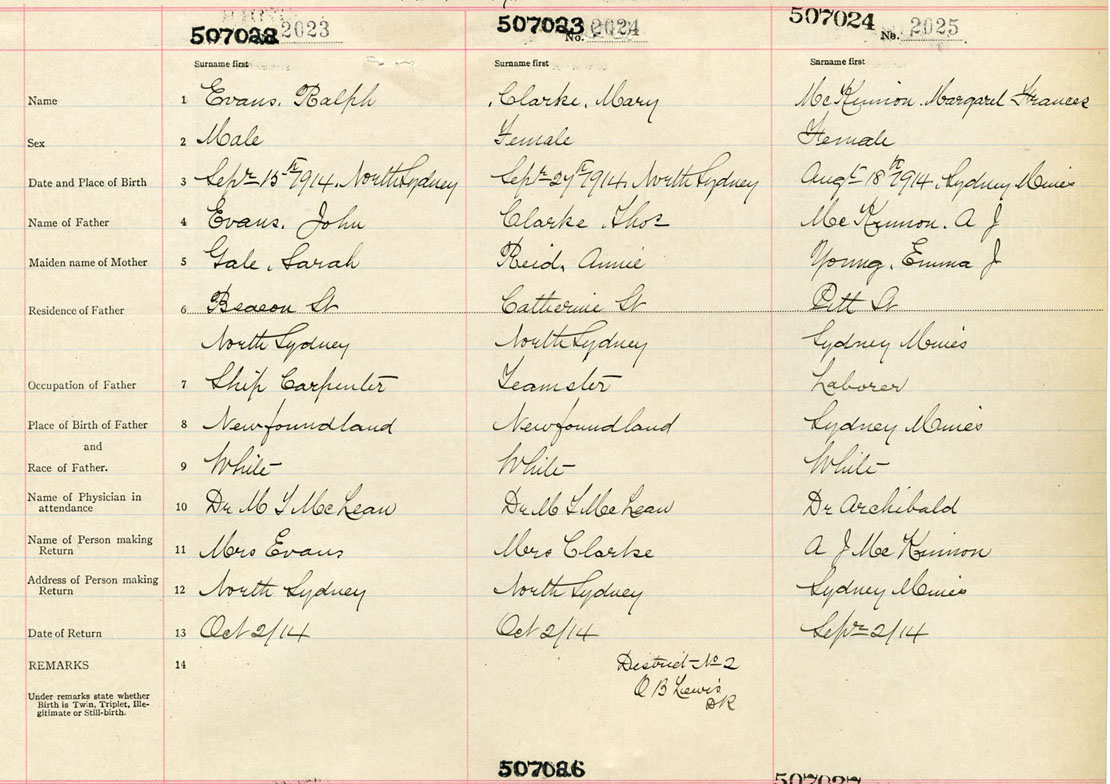 507022 2023 507023 No. 2024 507024 No. 2025
Surname first Surname first Surname first
Name 1 Evans, Ralph Clarke, Mary McKinnon, Margaret Frances
Sex 2 Male Female Female
Date and Place of Birth 3 Sepr 15th 1914, North Sydney Sepr 27th 1914, North Sydney Augt 18th 1914, Sydney Mines
Name of Father 4 Evans, John Clarke, Thos McKinnon, A J
Maiden name of Mother 5 Gale, Sarah Reid, Annie Young, Emma J
Residence of Father 6 Beacon St Catherine St Pitt St
North Sydney North Sydney Sydney Mines
Occupation of Father 7 Ship Carpenter Teamster Laborer
Place of Birth of Father 8 Newfoundland Newfoundland Sydney Mines
and
Race of Father. 9 White White White
Name of Physician in
attendance 10 Dr M T McLean Dr M T McLean Dr Archibald
Name of Person making
Return 11 Mrs Evans Mrs Clarke A J McKinnon
Address of Person making
Return 12 North Sydney North Sydney Sydney Mines
Date of Return 13 Oct 2/14 Oct 2/14 Sepr 2/14
REMARKS 14 District No 2
O B Lewis
DR
Under remarks state whether
Birth is Twin, Triplet, Ille-
gitimate or Still-birth.
507026 507027